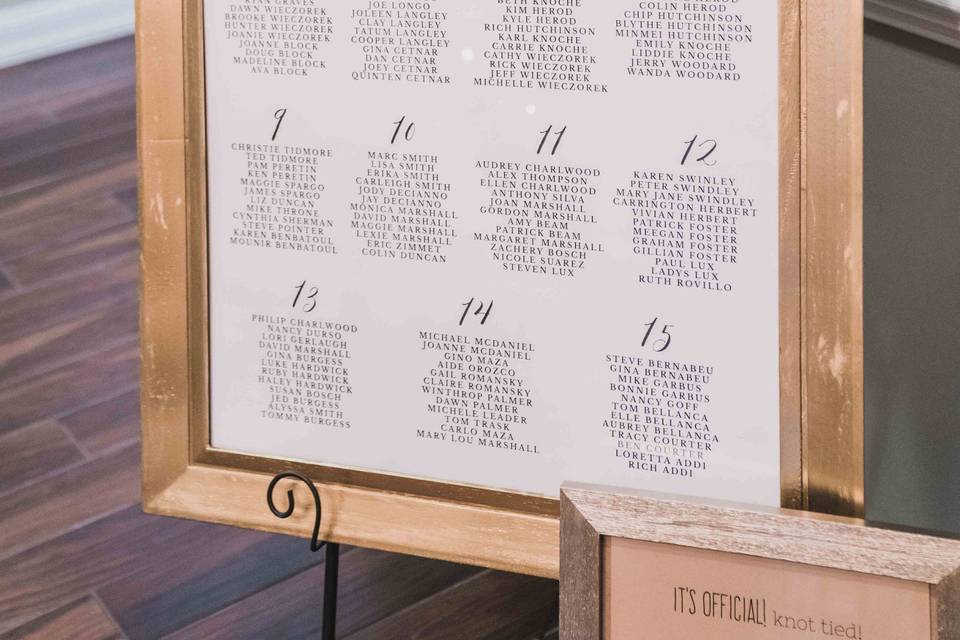 DAWN WIECZOREK
BROOKE WIECZOREK
HUNTER WIECZOREK
JOANIE WIECZOREK
JOANNE BLOCK
DOUG BLOCK
MADELINE BLOCK
AVA BLOCK
JOE LONGO
JOLEEN LANGLEY
CLAY LANGLEY
TATUM LANGLEY
COOPER LANGLEY
GINA CETNAR
DAN CETNAR
JOEY CETNAR
QUINTEN CETNAR
BETH KNOCHE
KIM HEROD
KYLE HEROD
RICH HUTCHINSON
KARL KNOCHE
CARRIE KNOCHE
CATHY WIECZOREK
RICK WIECZOREK
JEFF WIECZOREK
MICHELLE WIECZOREK
COLIN HEROD
CHIP HUTCHINSON
BLYTHE HUTCHINSON
MINMEI HUTCHINSON
EMILY KNOCHE
LIDDIE KNOCHE
JERRY WOODARD
WANDA WOODARD
9
CHRISTIE TIDMORE
TED TIDMORE
PAM PERETIN
KEN PERETIN
MAGGIE SPARGO
JAMES SPARGO
LIZ DUNCAN
MIKE THRONE
CYNTHIA SHERMAN
STEVE POINTER
KAREN BENBATOUL
MOUNIR BENBATOUL
10
MARC SMITH
LISA SMITH
ERIKA SMITH
CARLEIGH SMITH
JODY DECIANNO
JAY DECIANNO
MONICA MARSHALL
DAVID MARSHALL
MAGGIE MARSHALL
LEXIE MARSHALL
ERIC ZIMMET
COLIN DUNCAN
11
AUDREY CHARLWOOD
ALEX THOMPSON
ELLEN CHARLWOOD
ANTHONY SILVA
JOAN MARSHALL
GORDON MARSHALL
AMY BEAM
PATRICK BEAM
MARGARET MARSHALL
ZACHERY BOSCH
NICOLE SUAREZ
STEVEN LUX
12
KAREN SWINLEY
PETER SWINDLEY
MARY JANE SWINDLEY
CARRINGTON HERBERT
VIVIAN HERBERT
PATRICK FOSTER
MEEGAN FOSTER
GRAHAM FOSTER
GILLIAN FOSTER
PAUL LUX
LADYS LUX
RUTH ROVILLO
13
PHILIP CHARLWOOD
NANCY DURSO
LORI GERLAUGH
DAVID MARSHALL
GINA BURGESS
LUKE HARDWICK
RUBY HARDWICK
HALEY HARDWICK
SUSAN BOSCH
JED BURGESS
ALYSSA SMITH
TOMMY BURGESS
14
MICHAEL MCDANIEL
JOANNE MCDANIEL
GINO MAZA
AIDE OROZCO
GAIL ROMANSKY
CLAIRE ROMANSKY
WINTHROP PALMER
DAWN PALMER
MICHELE LEADER
TOM TRASK
CARLO MAZA
MARY LOU MARSHALL
15
STEVE BERNABEU
GINA BERNABEU
MIKE GARBUS
BONNIE GARBUS
NANCY GOFF
TOM BELLANCA
ELLE BELLANCA
AUBREY BELLANCA
TRACY COURTER
BEN COURTER
LORETTA ADDI
RICH ADDI
IT'S OFFICIAL! knot tied!